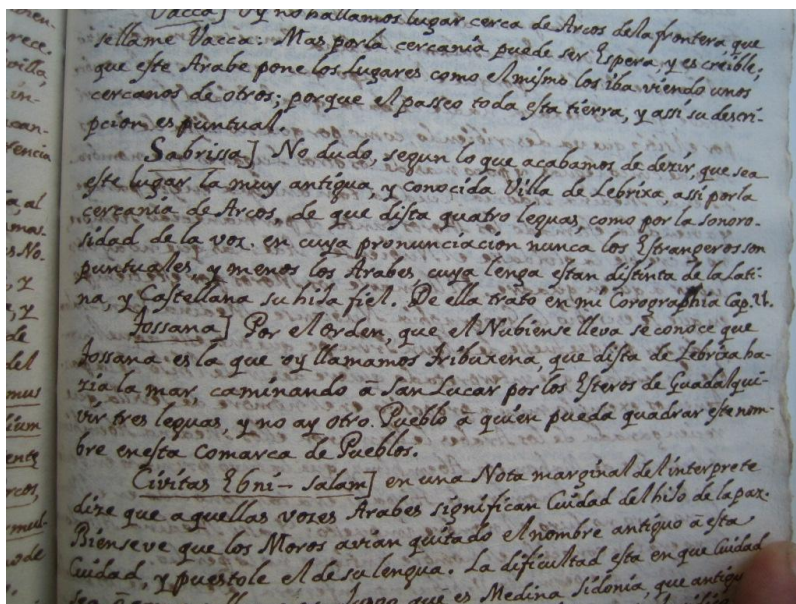 Vacca] Oy no hallamos lugar cerca de Arcos de la frontera, que
se llame Vacca: Mas por la cercanía puede ser Espera, y es creible;
que este Arabe pone los Lugares como el mismo los iba viendo unos
cercanos de otros; porque el passeo toda esta tierra, y assi su descri-
pcion es puntual.
Sabrissa] No dudo, segun lo que acabamos de dezir, que sea
este lugar la muy antigua, y conocida Villa de Lebrixa, assi por la
cercania de Arcos, de que dista quatro leguas, como por la sonoro-
sidad de la voz. en cuya pronunciacion nunca los Estrangeros son
puntuales, y menos los Arabes cuya lenga es tan distinta de la Lati-
na, y Castellana su hija fiel. De ella trato en mi Corographia Cap.
Jossana] Por el orden, que el Nubiense lleva se conoce que
Jossana es la que oy llamamos Tribuxena, que dista de Lebrixa ha-
zia la mar, caminando à San Lucar por los Esteros de Guadalqui-
vir tres leguas, y no ay otro Pueblo à quien pueda quadrar este nom-
bre en esta Comarca de Pueblos.
Civitas Ebni-Salam] en una Nota marginal del interprete
dize que aquellas vozes Arabes significan Ciudad del hijo de la paz.
Bien se ve que los Moros avian quitado el nombre antiguo à esta
Ciudad, y puestole el de su lengua. La dificultad esta en que Ciudad
que es Medina Sidonia, que antigu